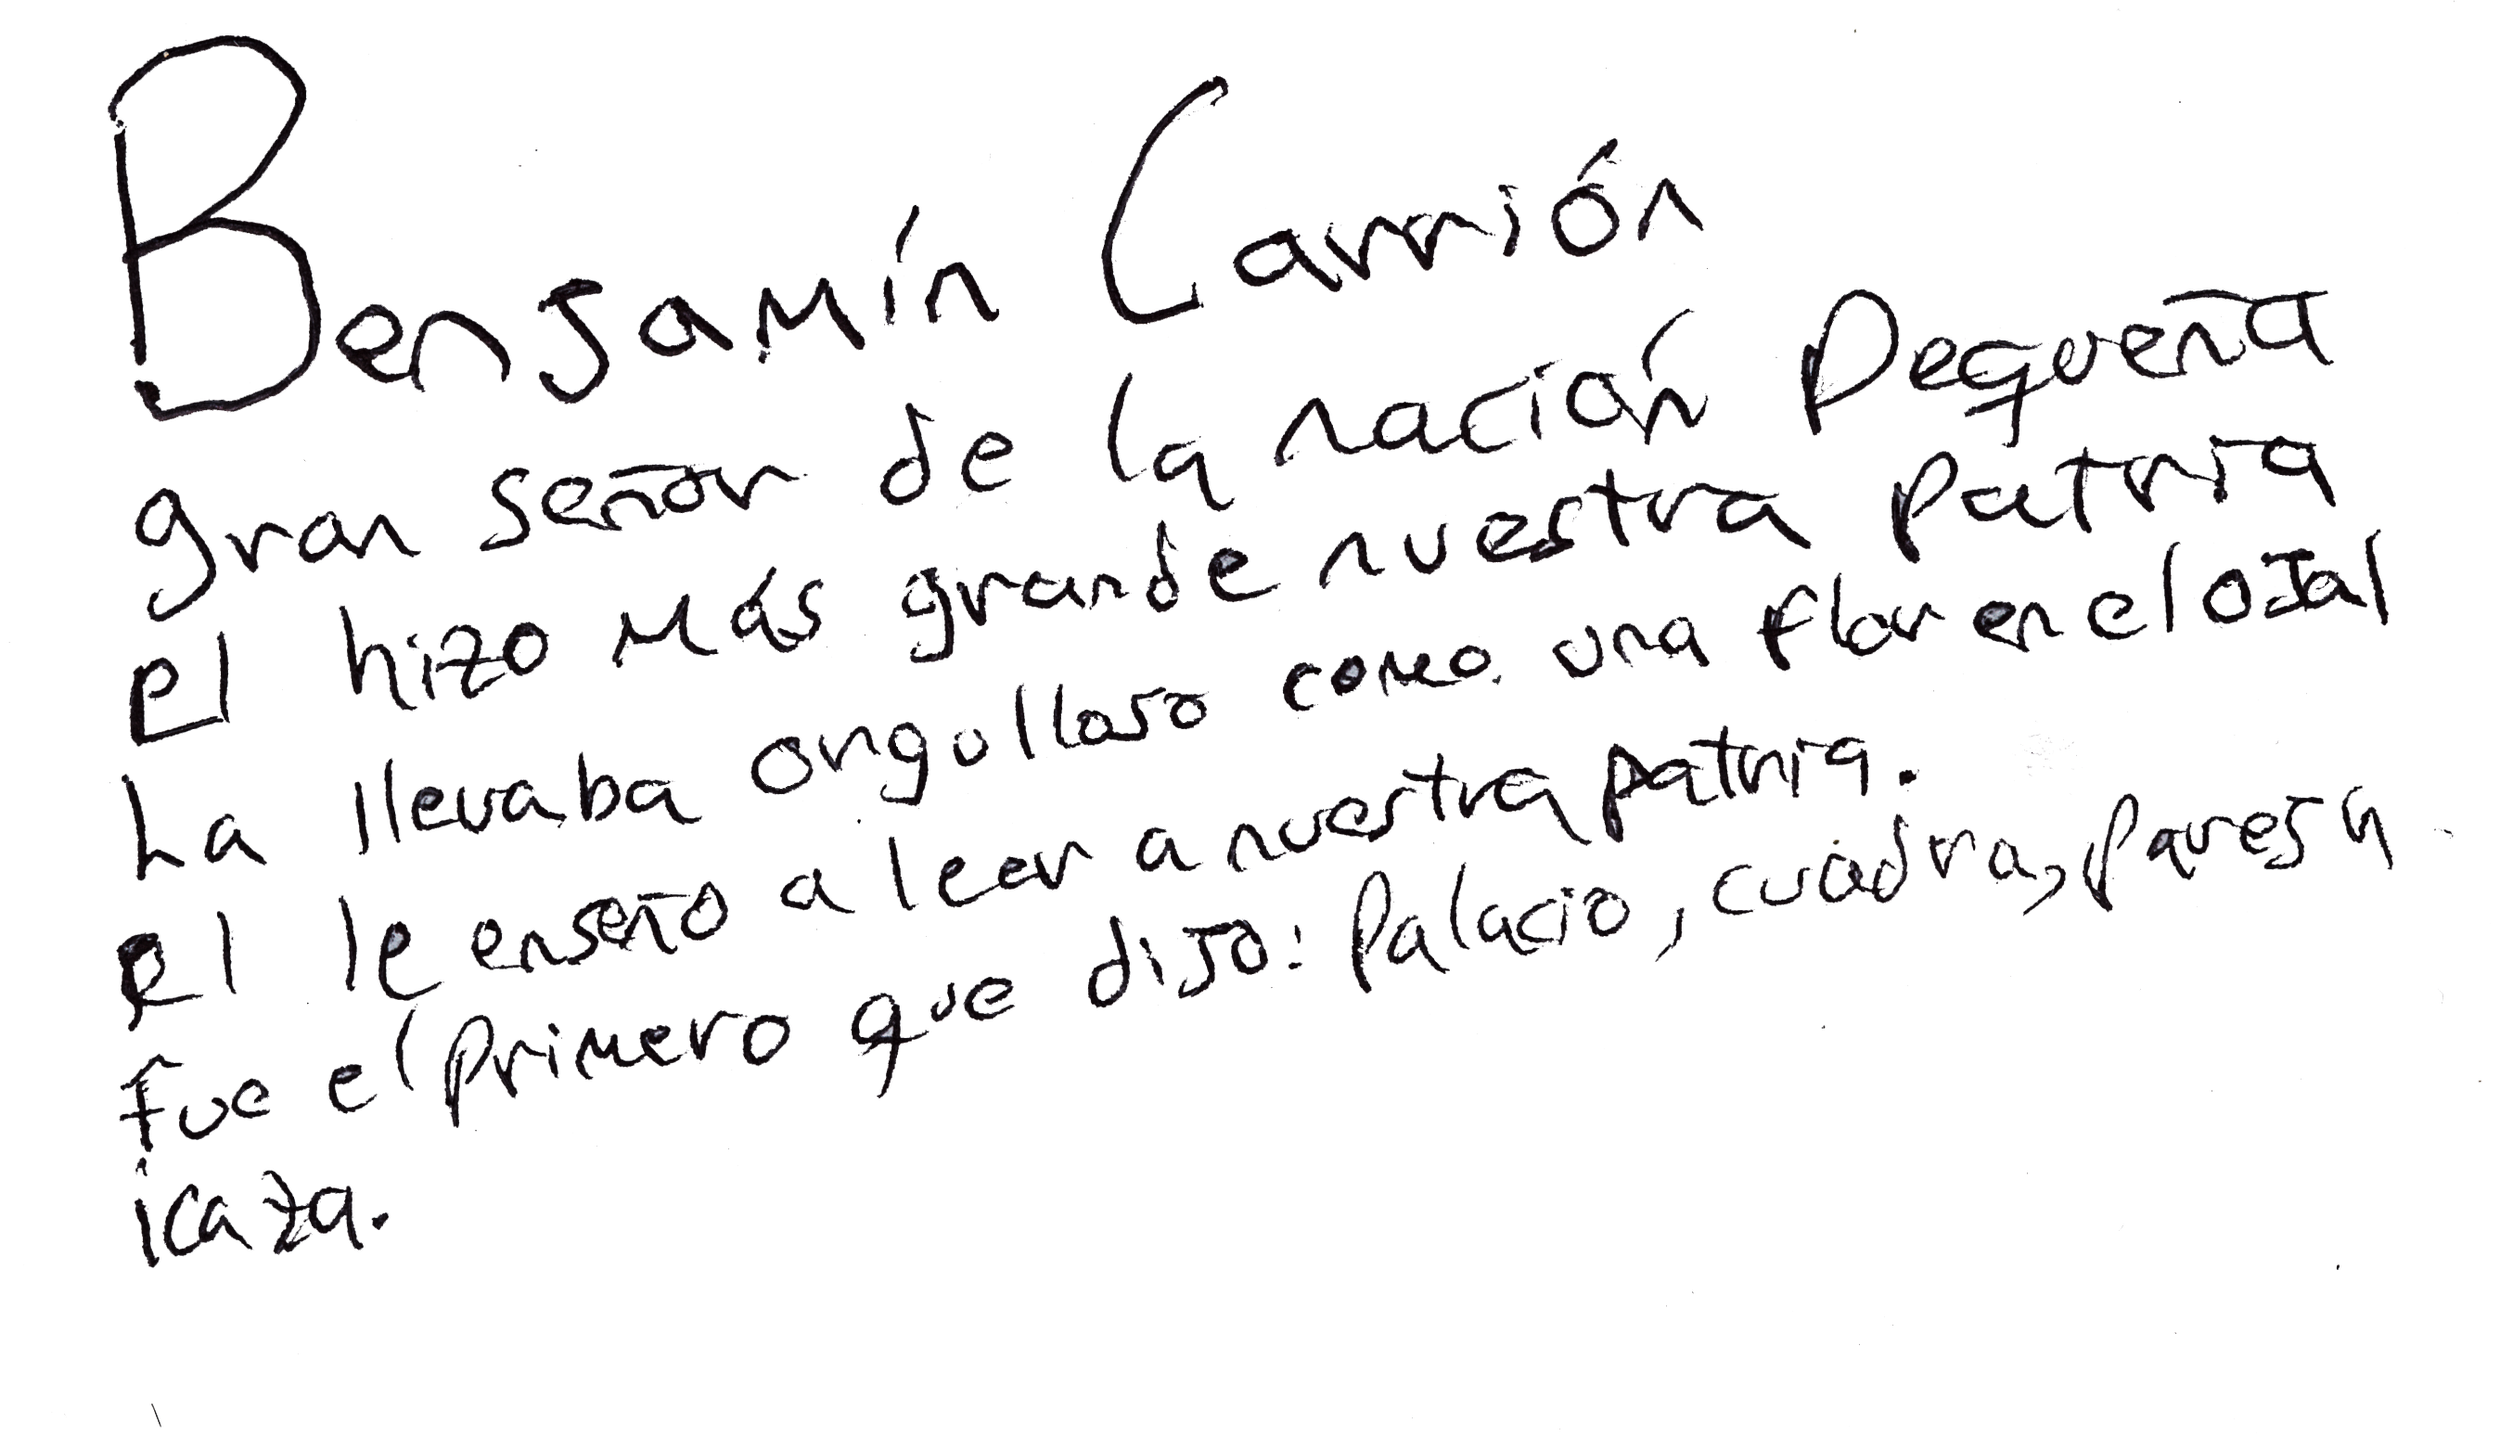 Benjamín Carrión
gran señor de la nación Pequeña
El hizo más grande nuestra patria
ha llevaba orgulloso como una flor en el ojal
El le enseño a leer a nuestra patria.
fue el primero que dijo: Palacio, cuadra, Pareja
icaza.